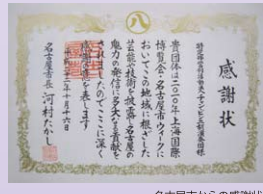 八
感謝状
貴団体は二〇一〇年上海国際
博覧会・名古屋市ウィークに
おいてこの地域に根ざした
芸能や技術を披露し名古屋の
魅力の発信に多大な貢献を
されましたのでここに深く
感謝の意を表します
平成二十二年十月十六日
名古屋市長 河村たかし
名古屋市からの感謝状